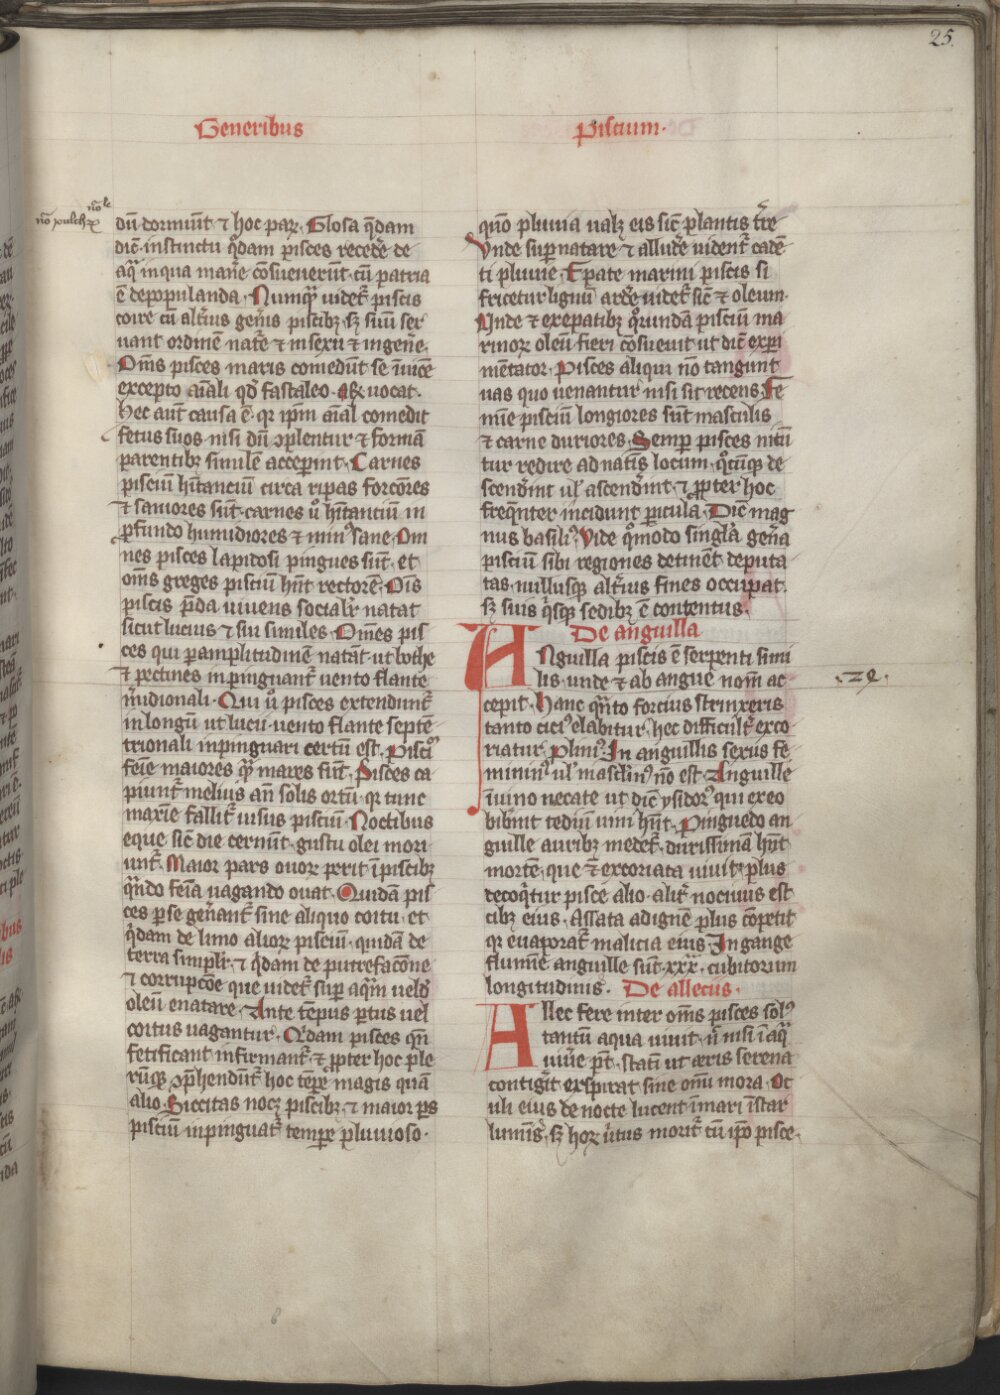 25.
Generibus
Piscium.
dū dormiūt ⁊ hoc parꝫ. Glosa q̄dam
dic̄. instinctu q̄dam pisces recedēr de
aq̄ in qua mane ꝯsueuerūt. cū patria
ē depopulanda. Numq̄ videt᷑ piscis
coire cū alt᷑ius gen̄is piscibꝫ. sꝫ suū ser
uant ordinē nat᷑e ⁊ in sexu ⁊ in gen̄e.
Om̄s pisces maris comedūt se īuicē
excepto aīali qd̓ fastaleo. uocat.
hec aūt causa ē. qꝛ ip̄m aīal comedit
fetus suos. nisi dū ꝯplentur ⁊ formā
parentibꝫ similē acceperint. Carnes
pisciū hītanciū circa ripas forcōres
⁊ saniores sūt. carnes ū̓ hītanciū in
ꝓfundo humidiores ⁊ minꝰ sane. Om
nes pisces lapidosi pingues sūt. et
om̄s greges pisciū hn̄t rectorē. Oīs
piscis p̄da uiuens social᷑r natat
sicut lucius ⁊ sui similes. Om̄es pis
ces qui ꝑ amplitudinē natāt. ut bothe
⁊ pectines inpinguant᷑ uento flante
m̄idionali. Qui ū̓ pisces extendunt᷑
in longū ut lucii. uento flante septē
trionali inpinguari certū est. Pisciū
feīe maiores q̄ꝫ mares sūt. Pisces ca
piunt᷑ melius an̄ solis ortū. qꝛ tunc
maxīe fallit᷑ uisus pisciū. Noctibus
eque sic̄ die cernūt. gustu olei mori
unt᷑. Maior pars ouoꝝ perit ī piscibꝫ
q̄ndo feīa uagando ouat. Quidā pis
ces per se gen̄ant᷑ sine aliquo coitu. et
q̓dam de limo alioꝝ pisciū. quidā de
terra simpl᷑r. ⁊ q̓dam de putrefacōne
⁊ corrupcōe que videt᷑ sup̲ aq̄m uelud
oleū enatare. Ante tēpus partus uel
coitus uagantur. Q̓dam pisces qn̄
fetificant infirmant᷑. ⁊ ꝓpter hoc ple
rūqꝫ ꝯp̄hendūt᷑ hoc tēpe magis quā
alio. Siccitas nocꝫ piscibꝫ. ⁊ maior ps
pisciū inpinguat᷑ tempe pluuioso.
quō pluuia ualꝫ eis sic̄ plantis t᷑re
Vnde sup̲natare ⁊ allud̓e uident᷑ cadē
ti pluuie. Epate marini piscis si
fricetur lignū ard̓e videt᷑ sic̄ ⁊ oleum.
Vnde ⁊ ex epatibꝫ q̓rundā pisciū ma
rinoꝝ oleū fieri ꝯsueuit ut dic̄ experi
mētator. Pisces aliqui nō tangunt
uas quo uenantur nisi sit recens. Fe
mīe pisciū longiores sūt masculis
⁊ carne duriores. Semp̲ pisces nitū
tur redire ad natīs locum. q̓cūqꝫ de
scend̓int ul᷑ ascend̓int. ⁊ ꝓpter hoc
freq̄nter incidunt pericula. Dic̄ mag
nus basiliꝰ. Vide q̓modo singl᷑a gen̄a
pisciū sibi regiones detinēt deputa
tas. nullusqꝫ alt᷑ius fines occupat.
sꝫ suis q̓sqꝫ sedibꝫ ē contentus.
De anguilla
Anguilla piscis ē serpenti simi
lis. unde ⁊ ab angue nom̄ ac
cepit. Hanc q̄nto forcius strinxeris
tanto ciciꝰ elabitur. hec difficult᷑ exco
riatur. Pliniꝰ. In anguillis sexus fe
mininꝰ ul᷑ masc̄linꝰ nō est. Anguille
ī uino necate ut dic̄ ysidorꝰ qui ex eo
bib̓int tediū uini hn̄t. Pinguedo an
guille auribꝫ medet᷑. durissimā hn̄t
mortē. que ⁊ excoriata uiuit. plus
decoq̓tur pisce alio. alit᷑ nociuus est
cibꝫ eius. Assata ad ignē plus cōpetit
qꝛ euaporat᷑ malicia eius. In gange
flumīe anguille sūt. xxx. cubitorum
longitudinis. De allecius.
Allec fere inter om̄s pisces solꝰ
tantū aqua uiuit. n̄ nisi ī aq̄
uiuē pt̄. statī ut aeris serena
contig̓it exspirat sine om̄i mora. Oc
uli eius de nocte lucent ī mari īstar
lumīs. sꝫ hoꝝ uirtus morit᷑ cū ip̄o pisce.